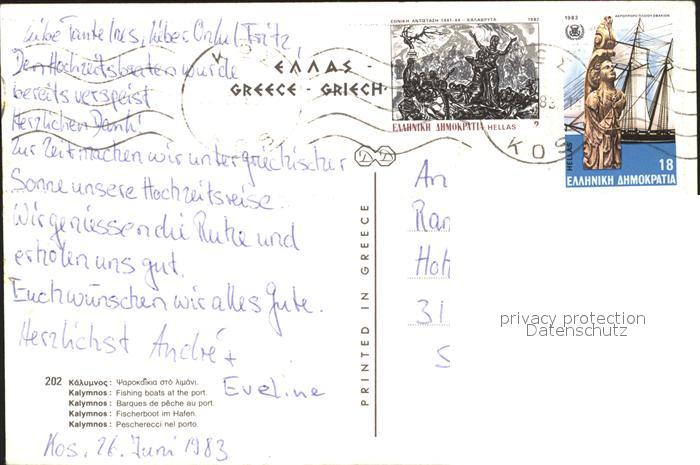 Liebe Tante Ines, lieber Onkel Fritz,
Der Hochzeitsbraten wurde
bereits verspeist
Herzlichen Dank!
Zur Zeit machen wir unter griechischer
Sonne unsere Hochzeitsreise.
Wir geniessen die Ruhe und
erholen uns gut.
Euch wünschen wir alles Gute.
Herzlichst André +
Eveline
202 Κάλυμνος: Ψαροκαΐκια στό λιμάνι.
Kalymnos: Fishing boats at the port.
Kalymnos: Barques de pêche au port.
Kalymnos: Fischerboot im Hafen.
Kalymnos: Pescherecci nel porto.
Kos, 26. Juni 1983
ΕΛΛΑΣ -
GREECE - GRIECH
PRINTED IN GREECE
ΕΘΝΙΚΗ ΑΝΤΙΣΤΑΣΗ 1941-44 - ΚΑΛΑΒΡΥΤΑ 1982
ΕΛΛΗΝΙΚΗ ΔΗΜΟΚΡΑΤΙΑ HELLAS 2
83
ΚΩΣ
1983
HELLAS
18
ΕΛΛΗΝΙΚΗ ΔΗΜΟΚΡΑΤΙΑ
An
Ran
Hoh
31
S
privacy protection
Datenschutz